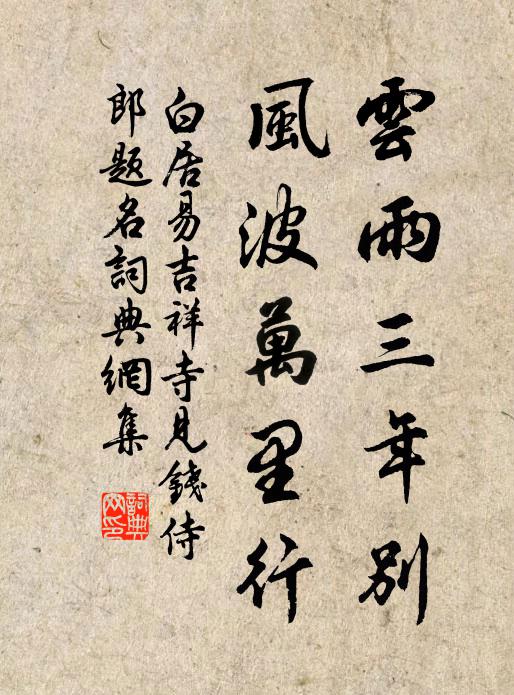 雲雨三年別
風波萬里行
白居易吉祥寺見錢侍
郎題名詞典網集
詞典
网印